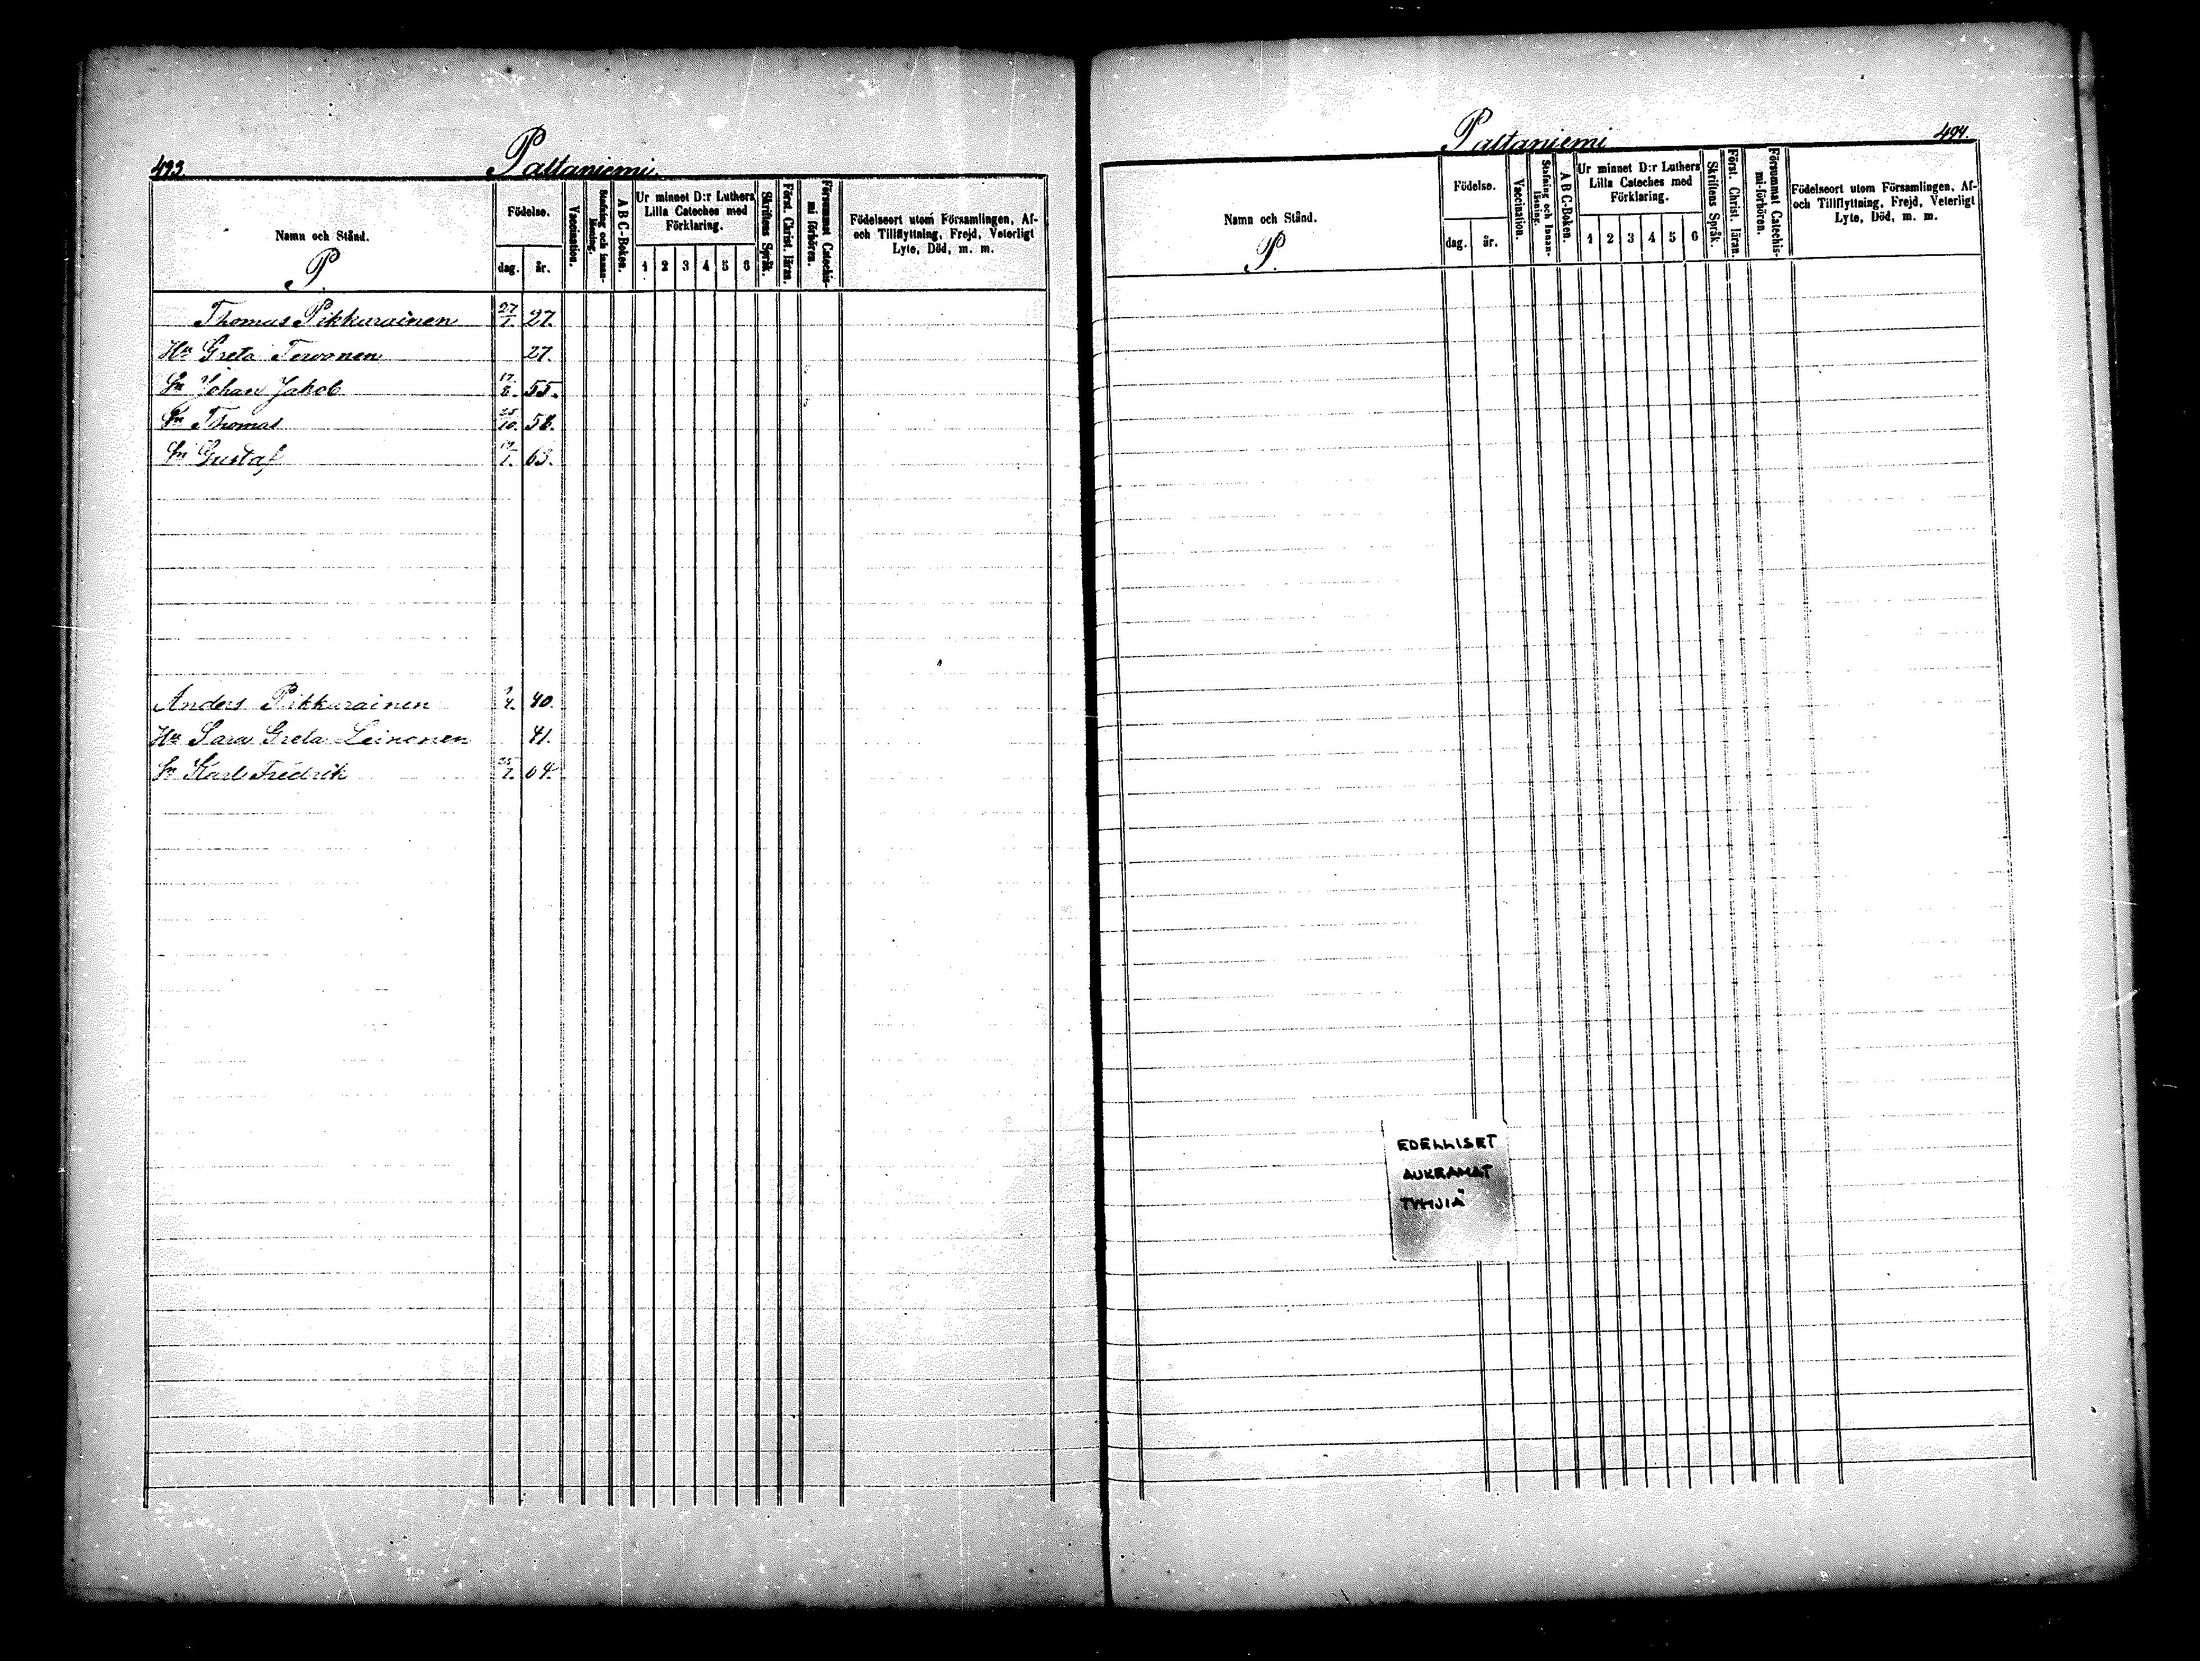 493.
Paltaniemi
Namn och Stånd.
P.
Födelse.
dag. år.
Vaccination.
Stafning och innan-läsning.
A B C-Boken.
Ur minnet D:r Luthers
Lilla Cateches med
Förklaring.
1 2 3 4 5 6
Skriftens Språk.
Först. Christ. läran.
Försummat Catechis-mi-förhören.
Födelseort utom Församlingen, Af-
och Tillflyttning, Frejd, Veterligt
Lyte, Död, m. m.
Thomas Pikkarainen 27/1. 27.
Hu Greta Tervonen 27.
Sn Johan Jakob 55.
Sn Thomas 25/10. 58.
Sn Gustaf 63.
Anders Pikkarainen 40.
Hu Sara Greta Leinonen 41.
Sn Karl Fredrik 64.
Paltaniemi
494.
Namn och Stånd.
P.
Födelse.
dag. år.
Vaccination.
Stafning och innan-läsning.
A B C-Boken.
Ur minnet D:r Luthers
Lilla Cateches med
Förklaring.
1 2 3 4 5 6
Skriftens Språk.
Först. Christ. läran.
Försummat Catechis-mi-förhören.
Födelseort utom Församlingen, Af-
och Tillflyttning, Frejd, Veterligt
Lyte, Död, m. m.
EDELLISET
AUKEAMAT
TYHJIÄ